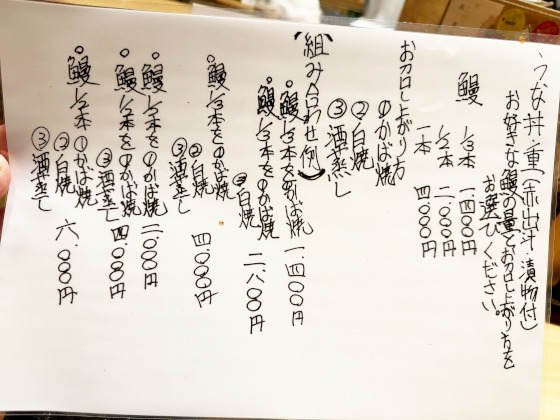 うな丼・重(赤出汁・漬物付)
お好きな鰻の量とお召し上がり方を
お選びください。
鰻
1/3本 一四〇〇円
1/2本 二〇〇〇円
一本 四〇〇〇円
お召し上がり方
①かば焼
②白焼
③酒蒸し
(組み合わせ例)
・鰻1/3本を①かば焼 一、四〇〇円
・鰻1/3本を①かば焼
②白焼 二、八〇〇円
・鰻1/3本を①かば焼
②白焼
③酒蒸し 四、〇〇〇円
・鰻1/2本を①かば焼 二、〇〇〇円
・鰻1/2本を①かば焼
③酒蒸し 四、〇〇〇円
・鰻1/2本①かば焼
②白焼
③酒蒸し 六、〇〇〇円